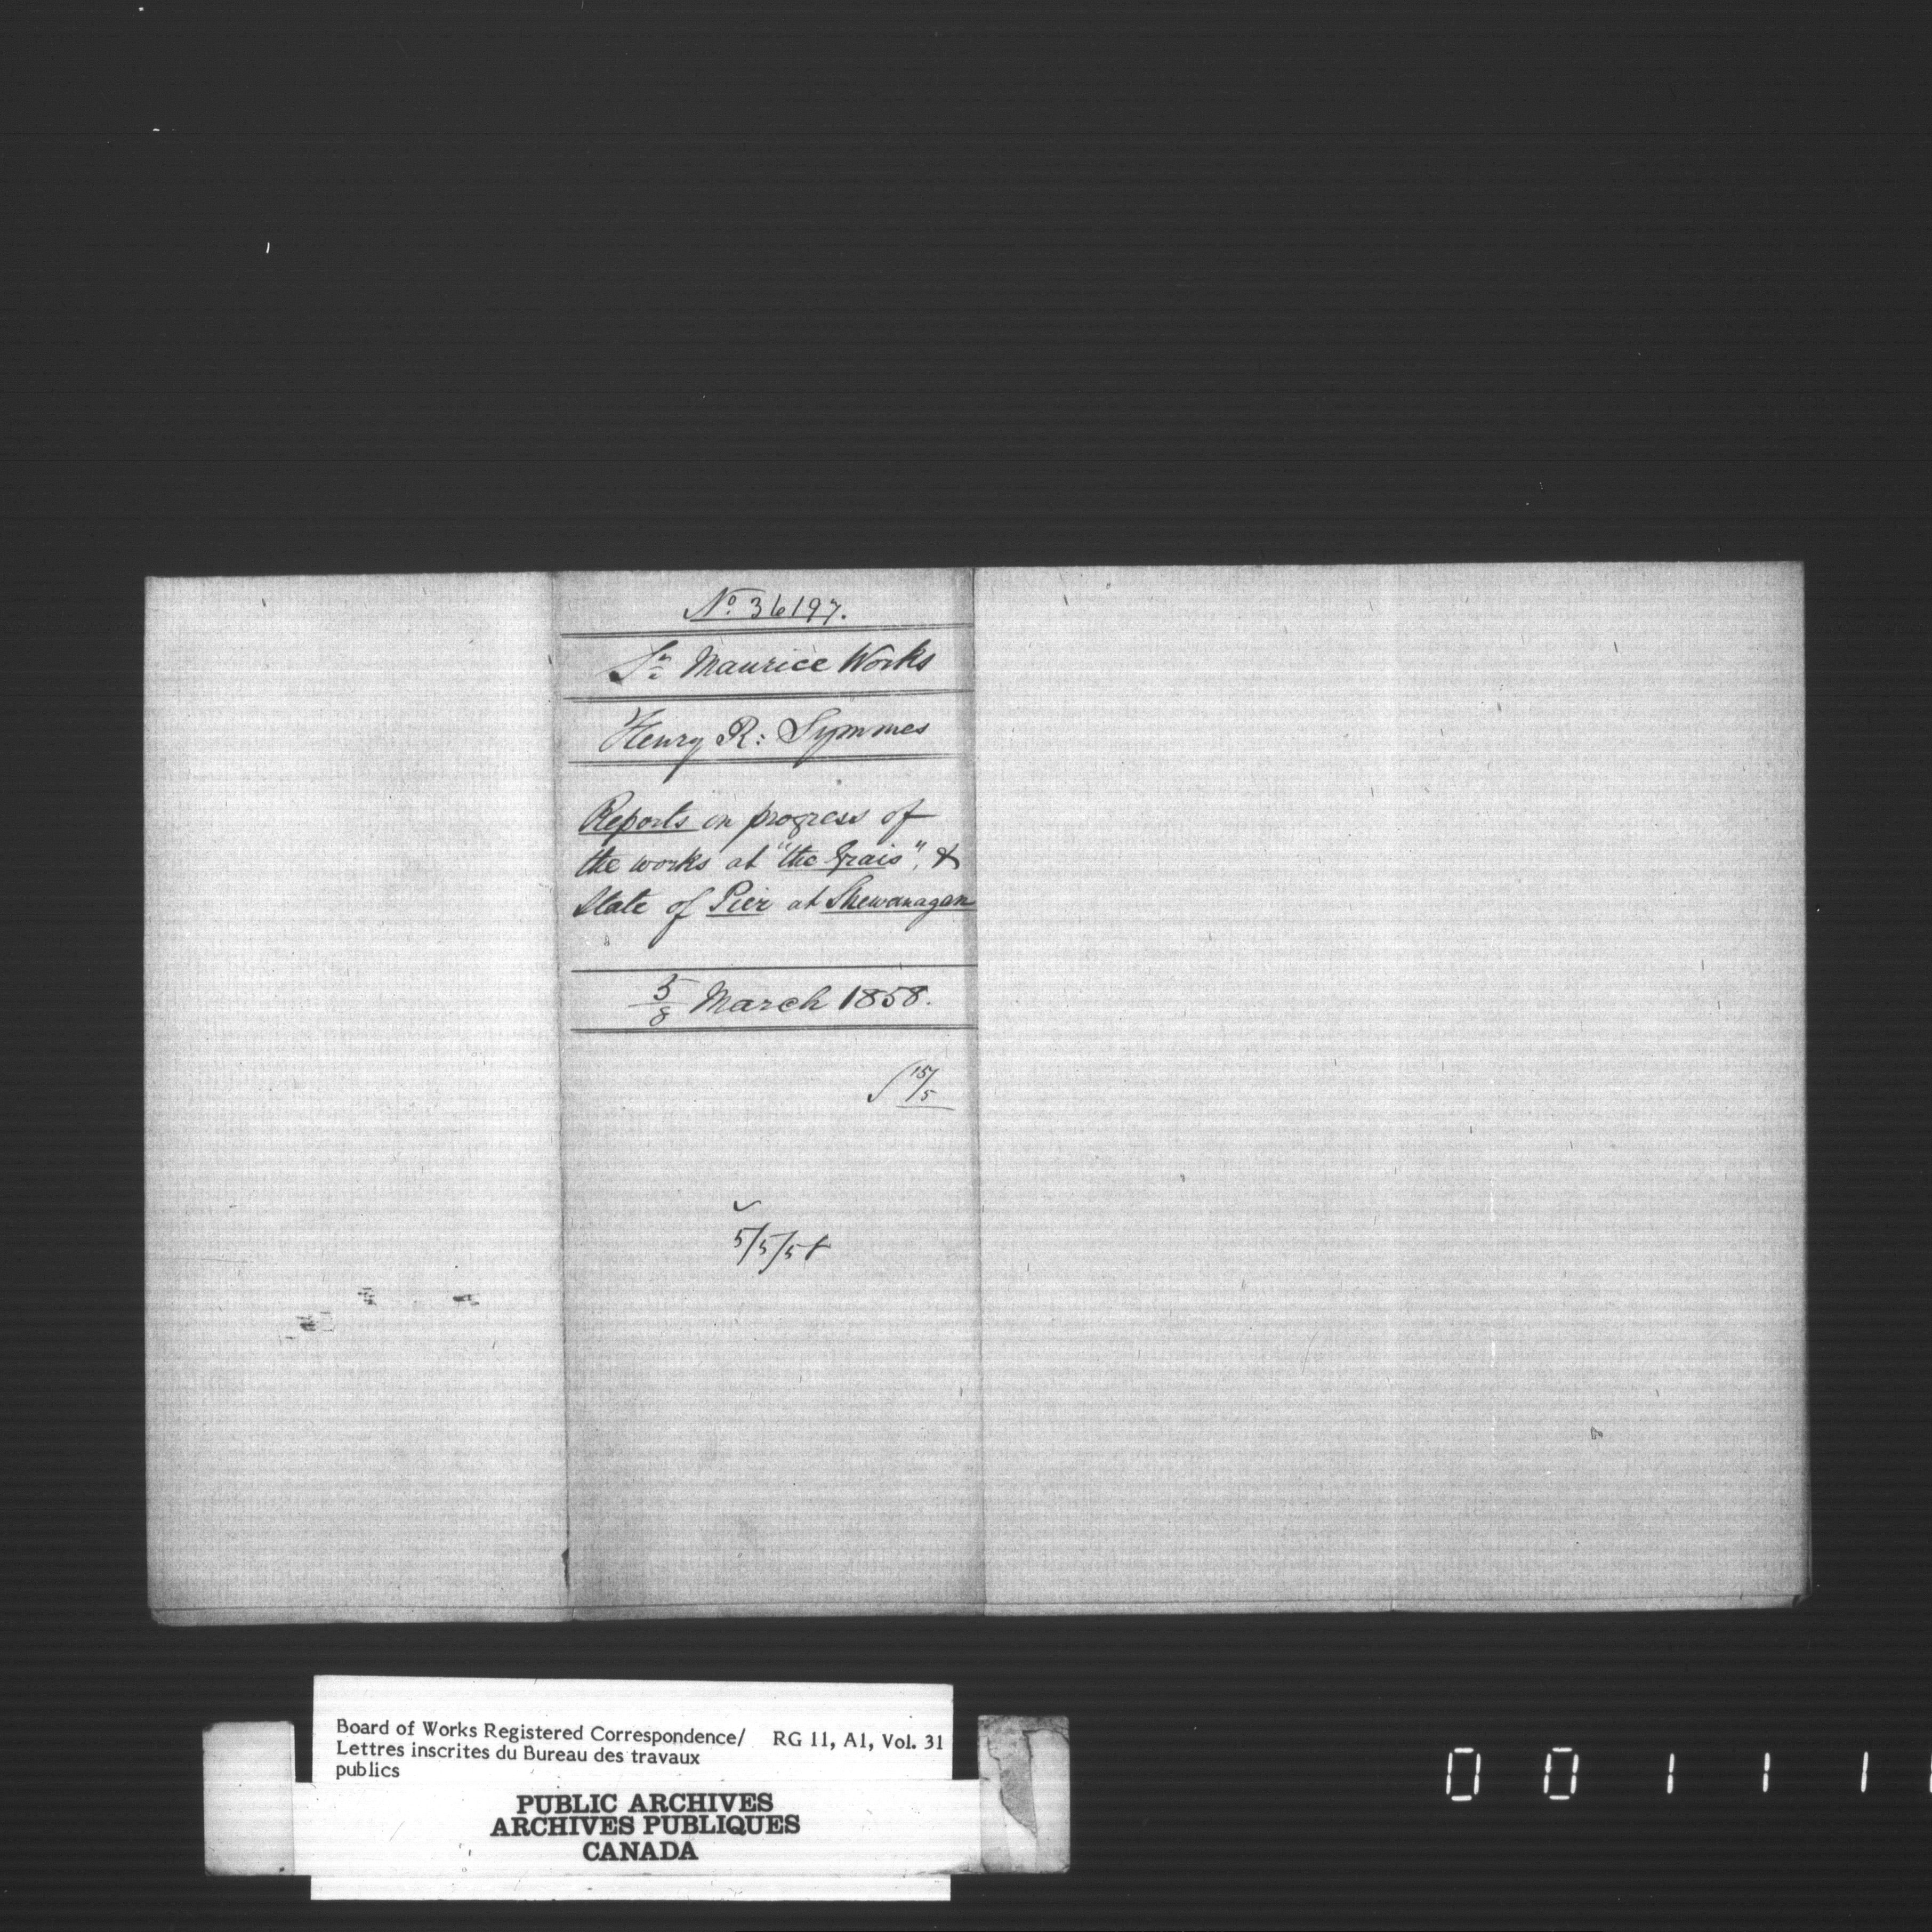 No. 36197.
St. Maurice Works
Henry R: Symmes
Reports on progress of
the works at "the Grais", &
State of Pier at Shewanagan
5/8 March 1858.
15/5
5/5/58
Board of Works Registered Correspondence/ RG 11, A1, Vol. 31
Lettres inscrites du Bureau des travaux
publics
PUBLIC ARCHIVES
ARCHIVES PUBLIQUES
CANADA
0 0 1 1 1